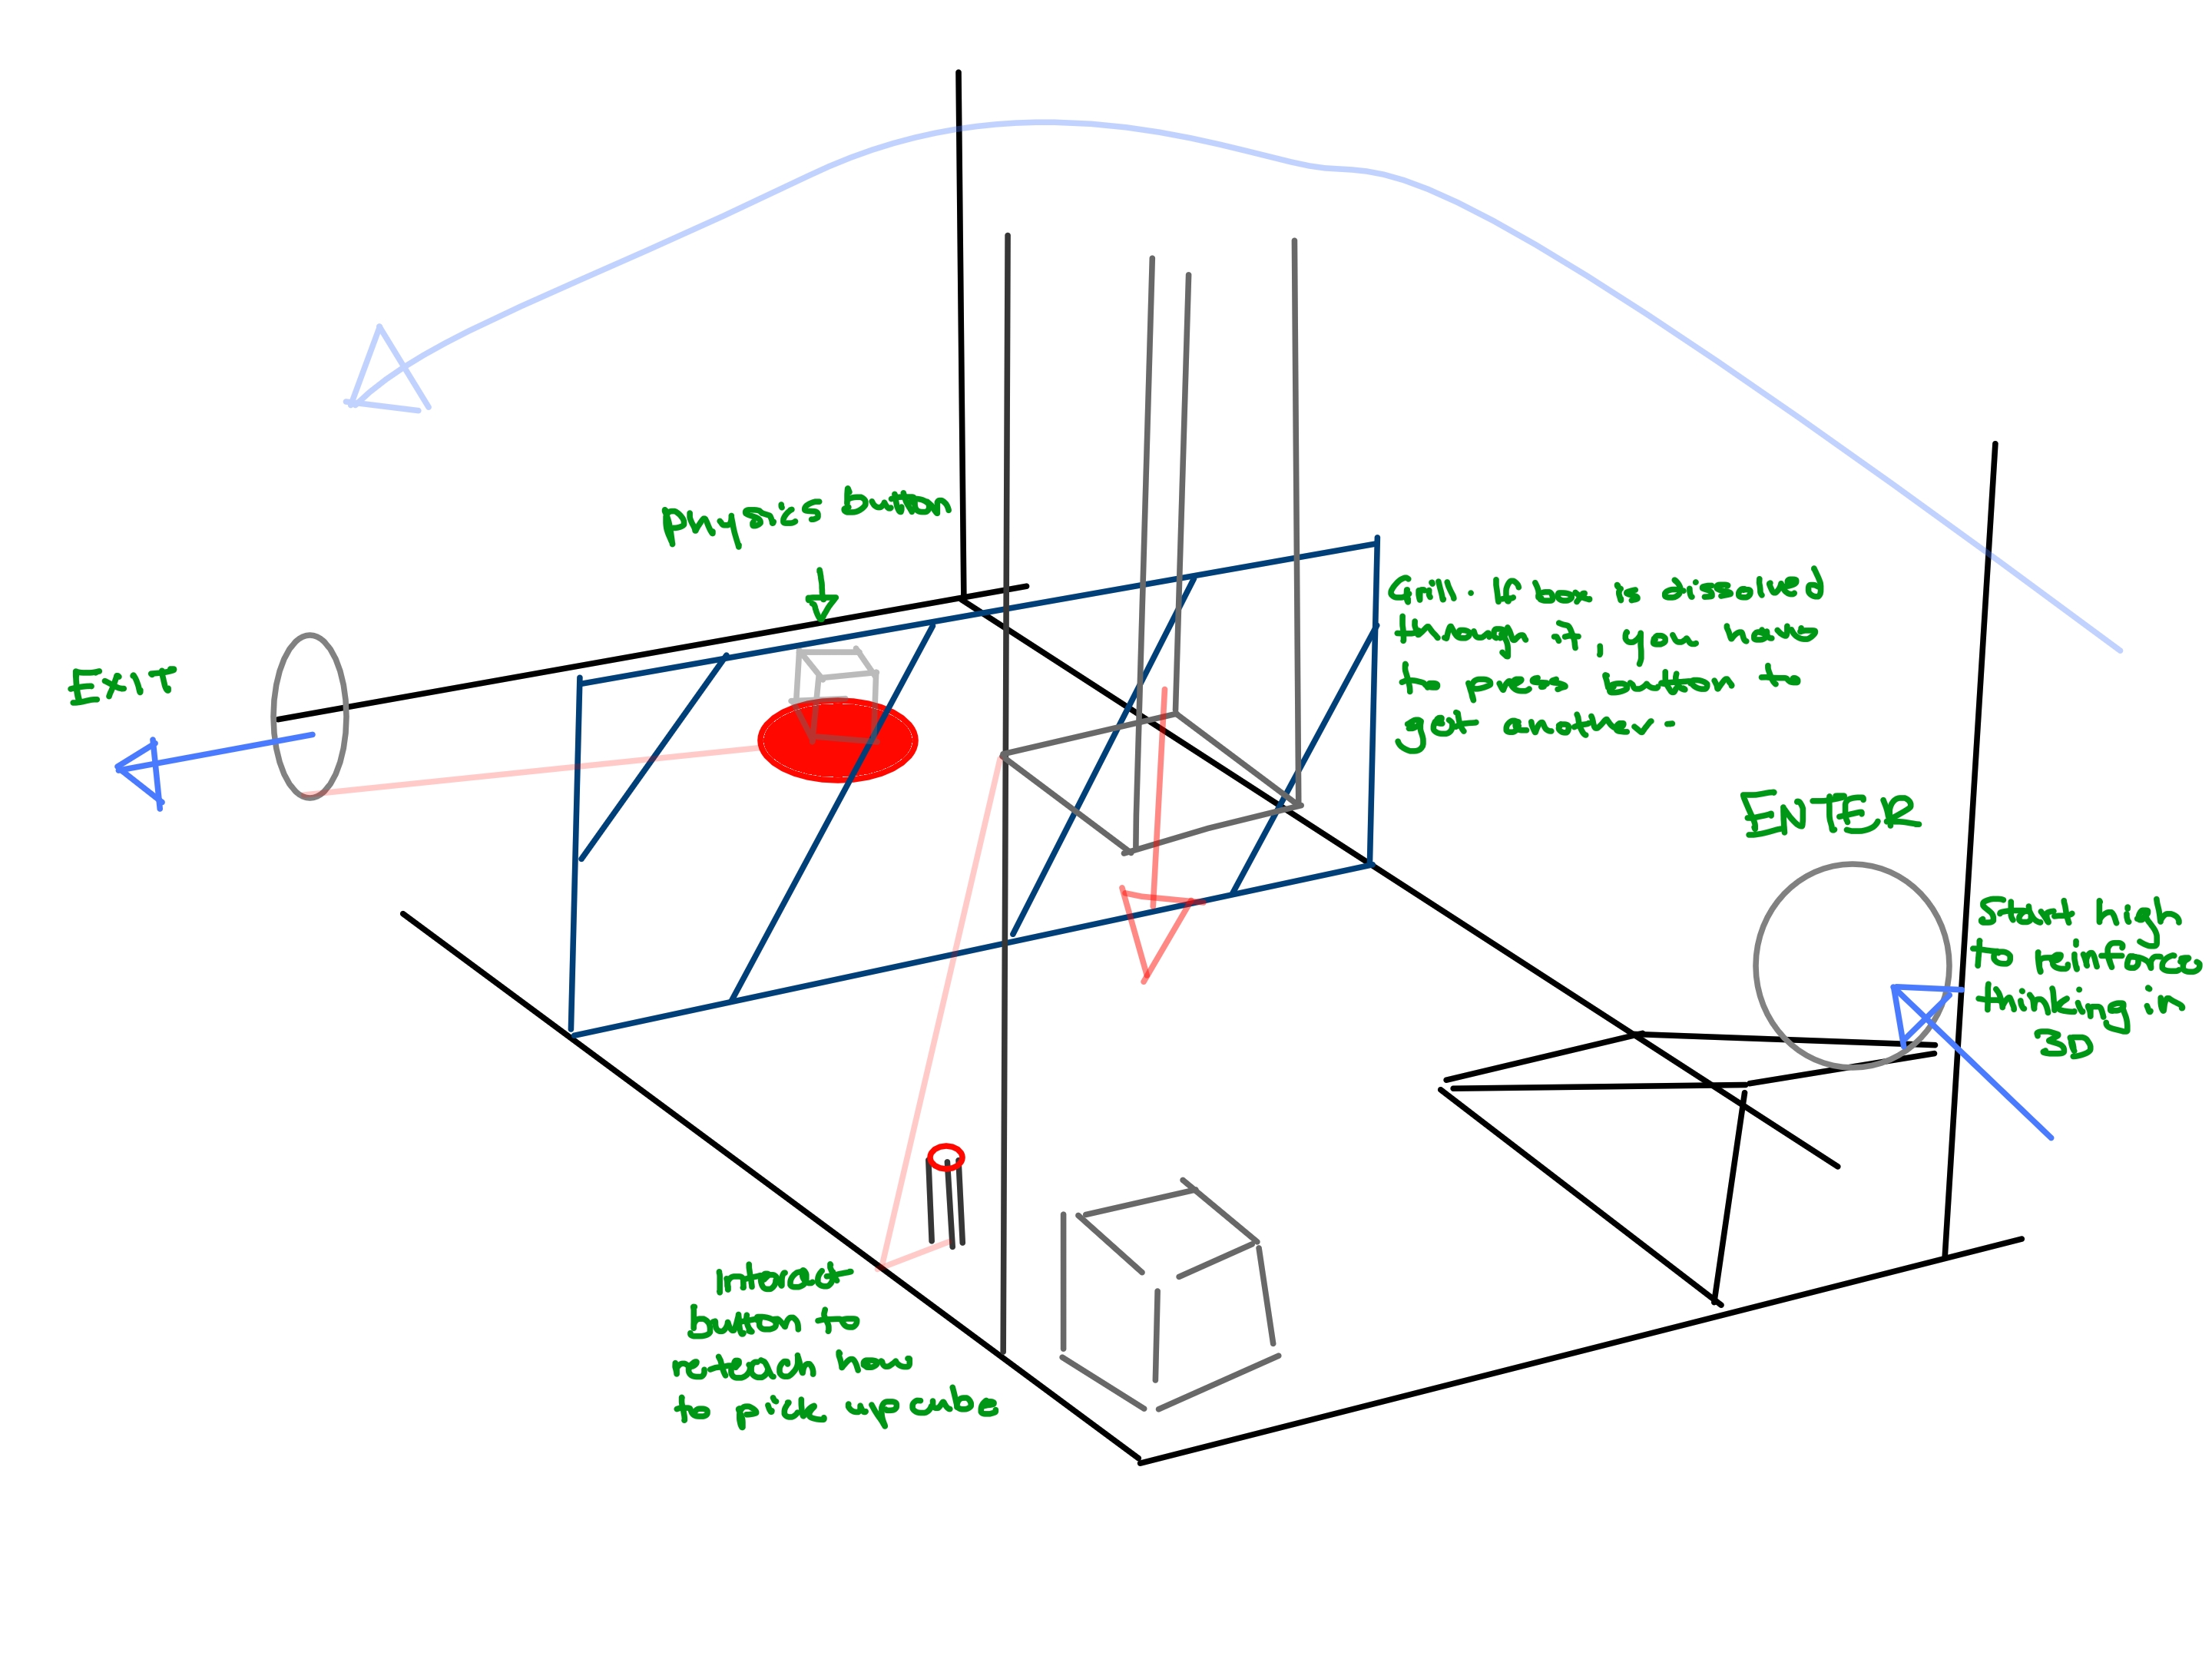 Physics button
Exit
Grill. If box is dissolved
through it, you have
to press button to
get another.
ENTER
Start high
to reinforce
thinking in
3D
Interact
button to
re-teach how
to pick up cube